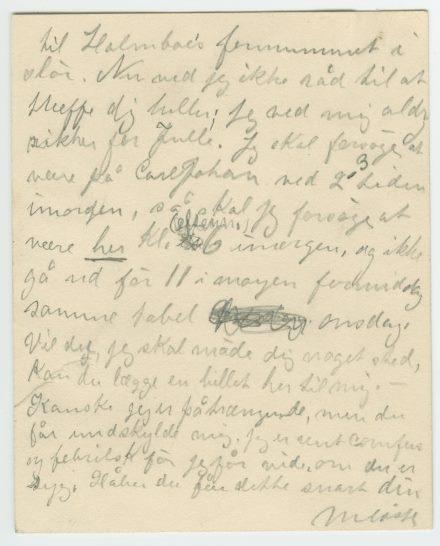 til Holmboe's fennummet i
slör. Nu ved jeg ikke råd til at
træffe dig heller; jeg ved mig aldri
sikker for Julle. Jeg skal forsöge at
være på Carl Johan ved 2 3 tiden
imorgen, så skal jeg forsöge at
(efterm.)
være her Kl. 6 imorgen, og ikke
gå ud för 11 i morgen formiddag
samme tabel onsdag.
Vil du, jeg skal møde dig noget sted,
kan du lægge en billet her til mig. —
Kanske jeg er påtrængende, men du
får undskylde mig, jeg er sent
og febrilsk för jeg får vide, om du er
syg. Håber du får dette snart din